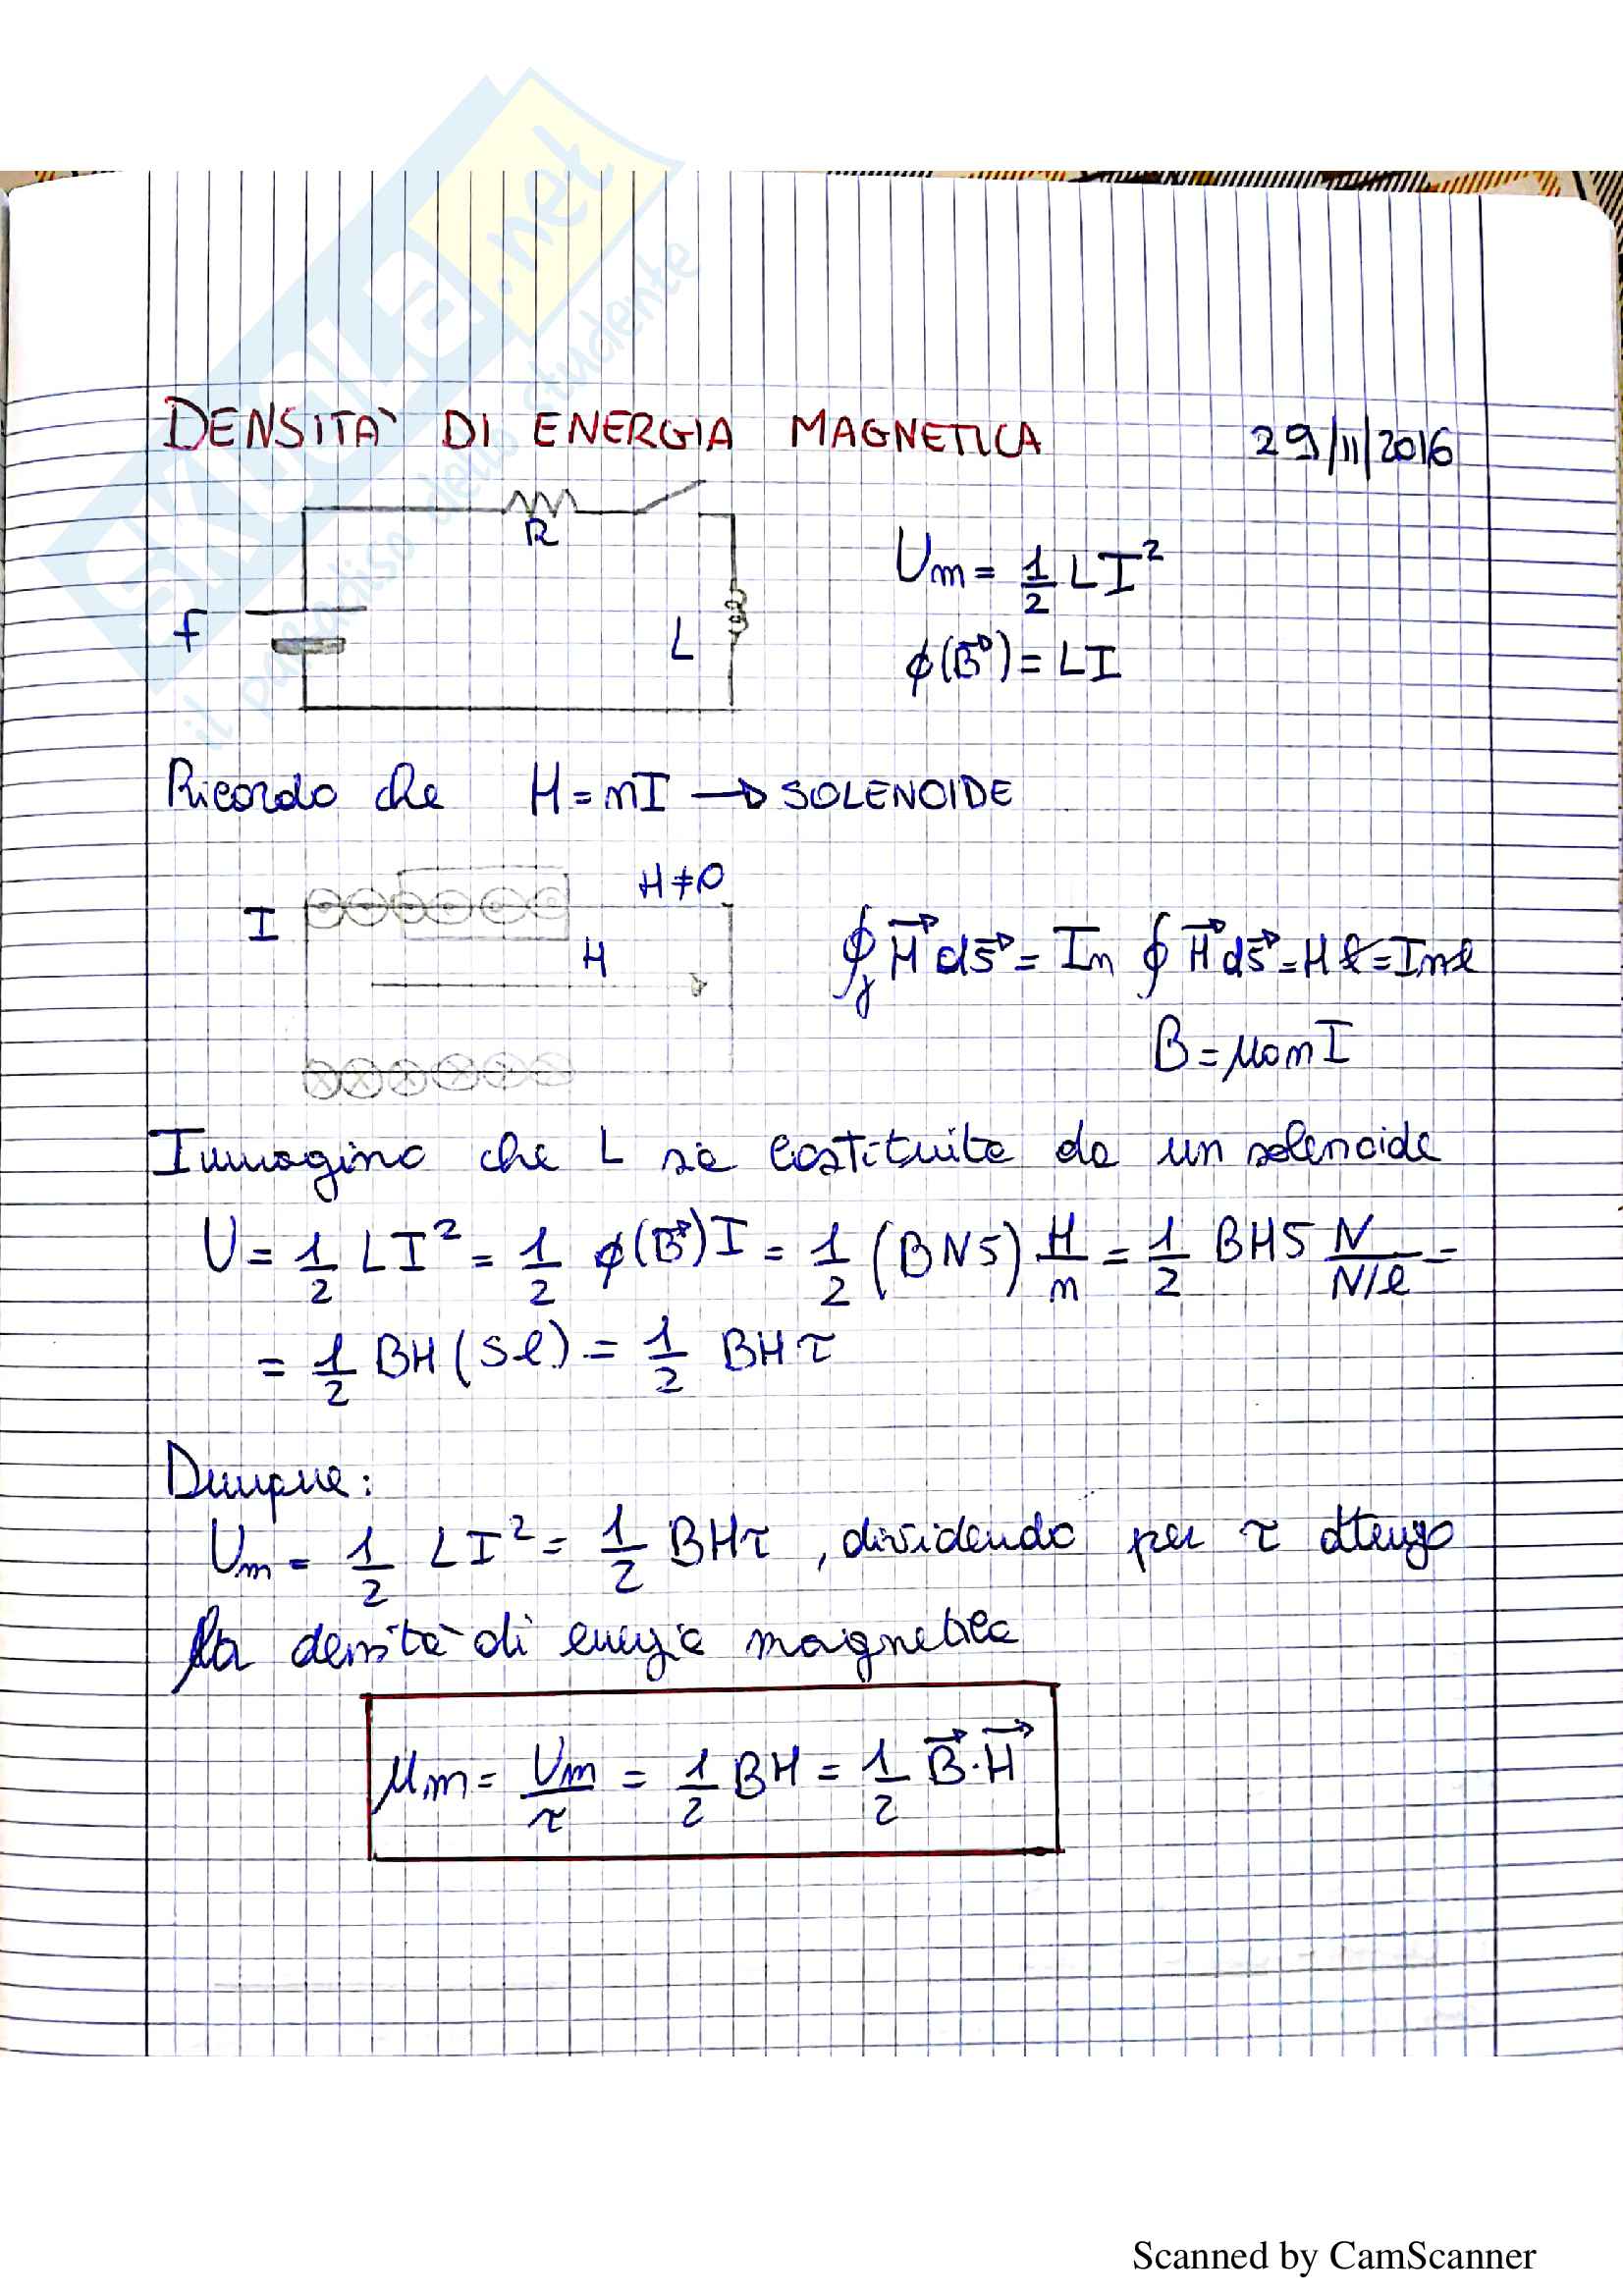 SKUOLA.net
il paradiso dello studente
DENSITA' DI ENERGIA MAGNETICA 29/11/2016
R
f
L
Um = 1/2 LI²
ϕ(B⃗) = LI
Ricordo che H = nI → SOLENOIDE
I
H ≠ 0
H
∮γ H⃗ ds⃗ = In ∮ H⃗ ds⃗ = Hℓ = Inℓ
B = μ0nI
Immagino che L sia costituita da un solenoide
U = 1/2 LI² = 1/2 ϕ(B⃗)I = 1/2 (BNS) H/n = 1/2 BHS N/(N/ℓ) =
= 1/2 BH(Sℓ) = 1/2 BHτ
Dunque:
Um = 1/2 LI² = 1/2 BHτ , dividendo per τ ottengo
la densità di energia magnetica
μm = Um/τ = 1/2 BH = 1/2 B⃗·H⃗
Scanned by CamScanner